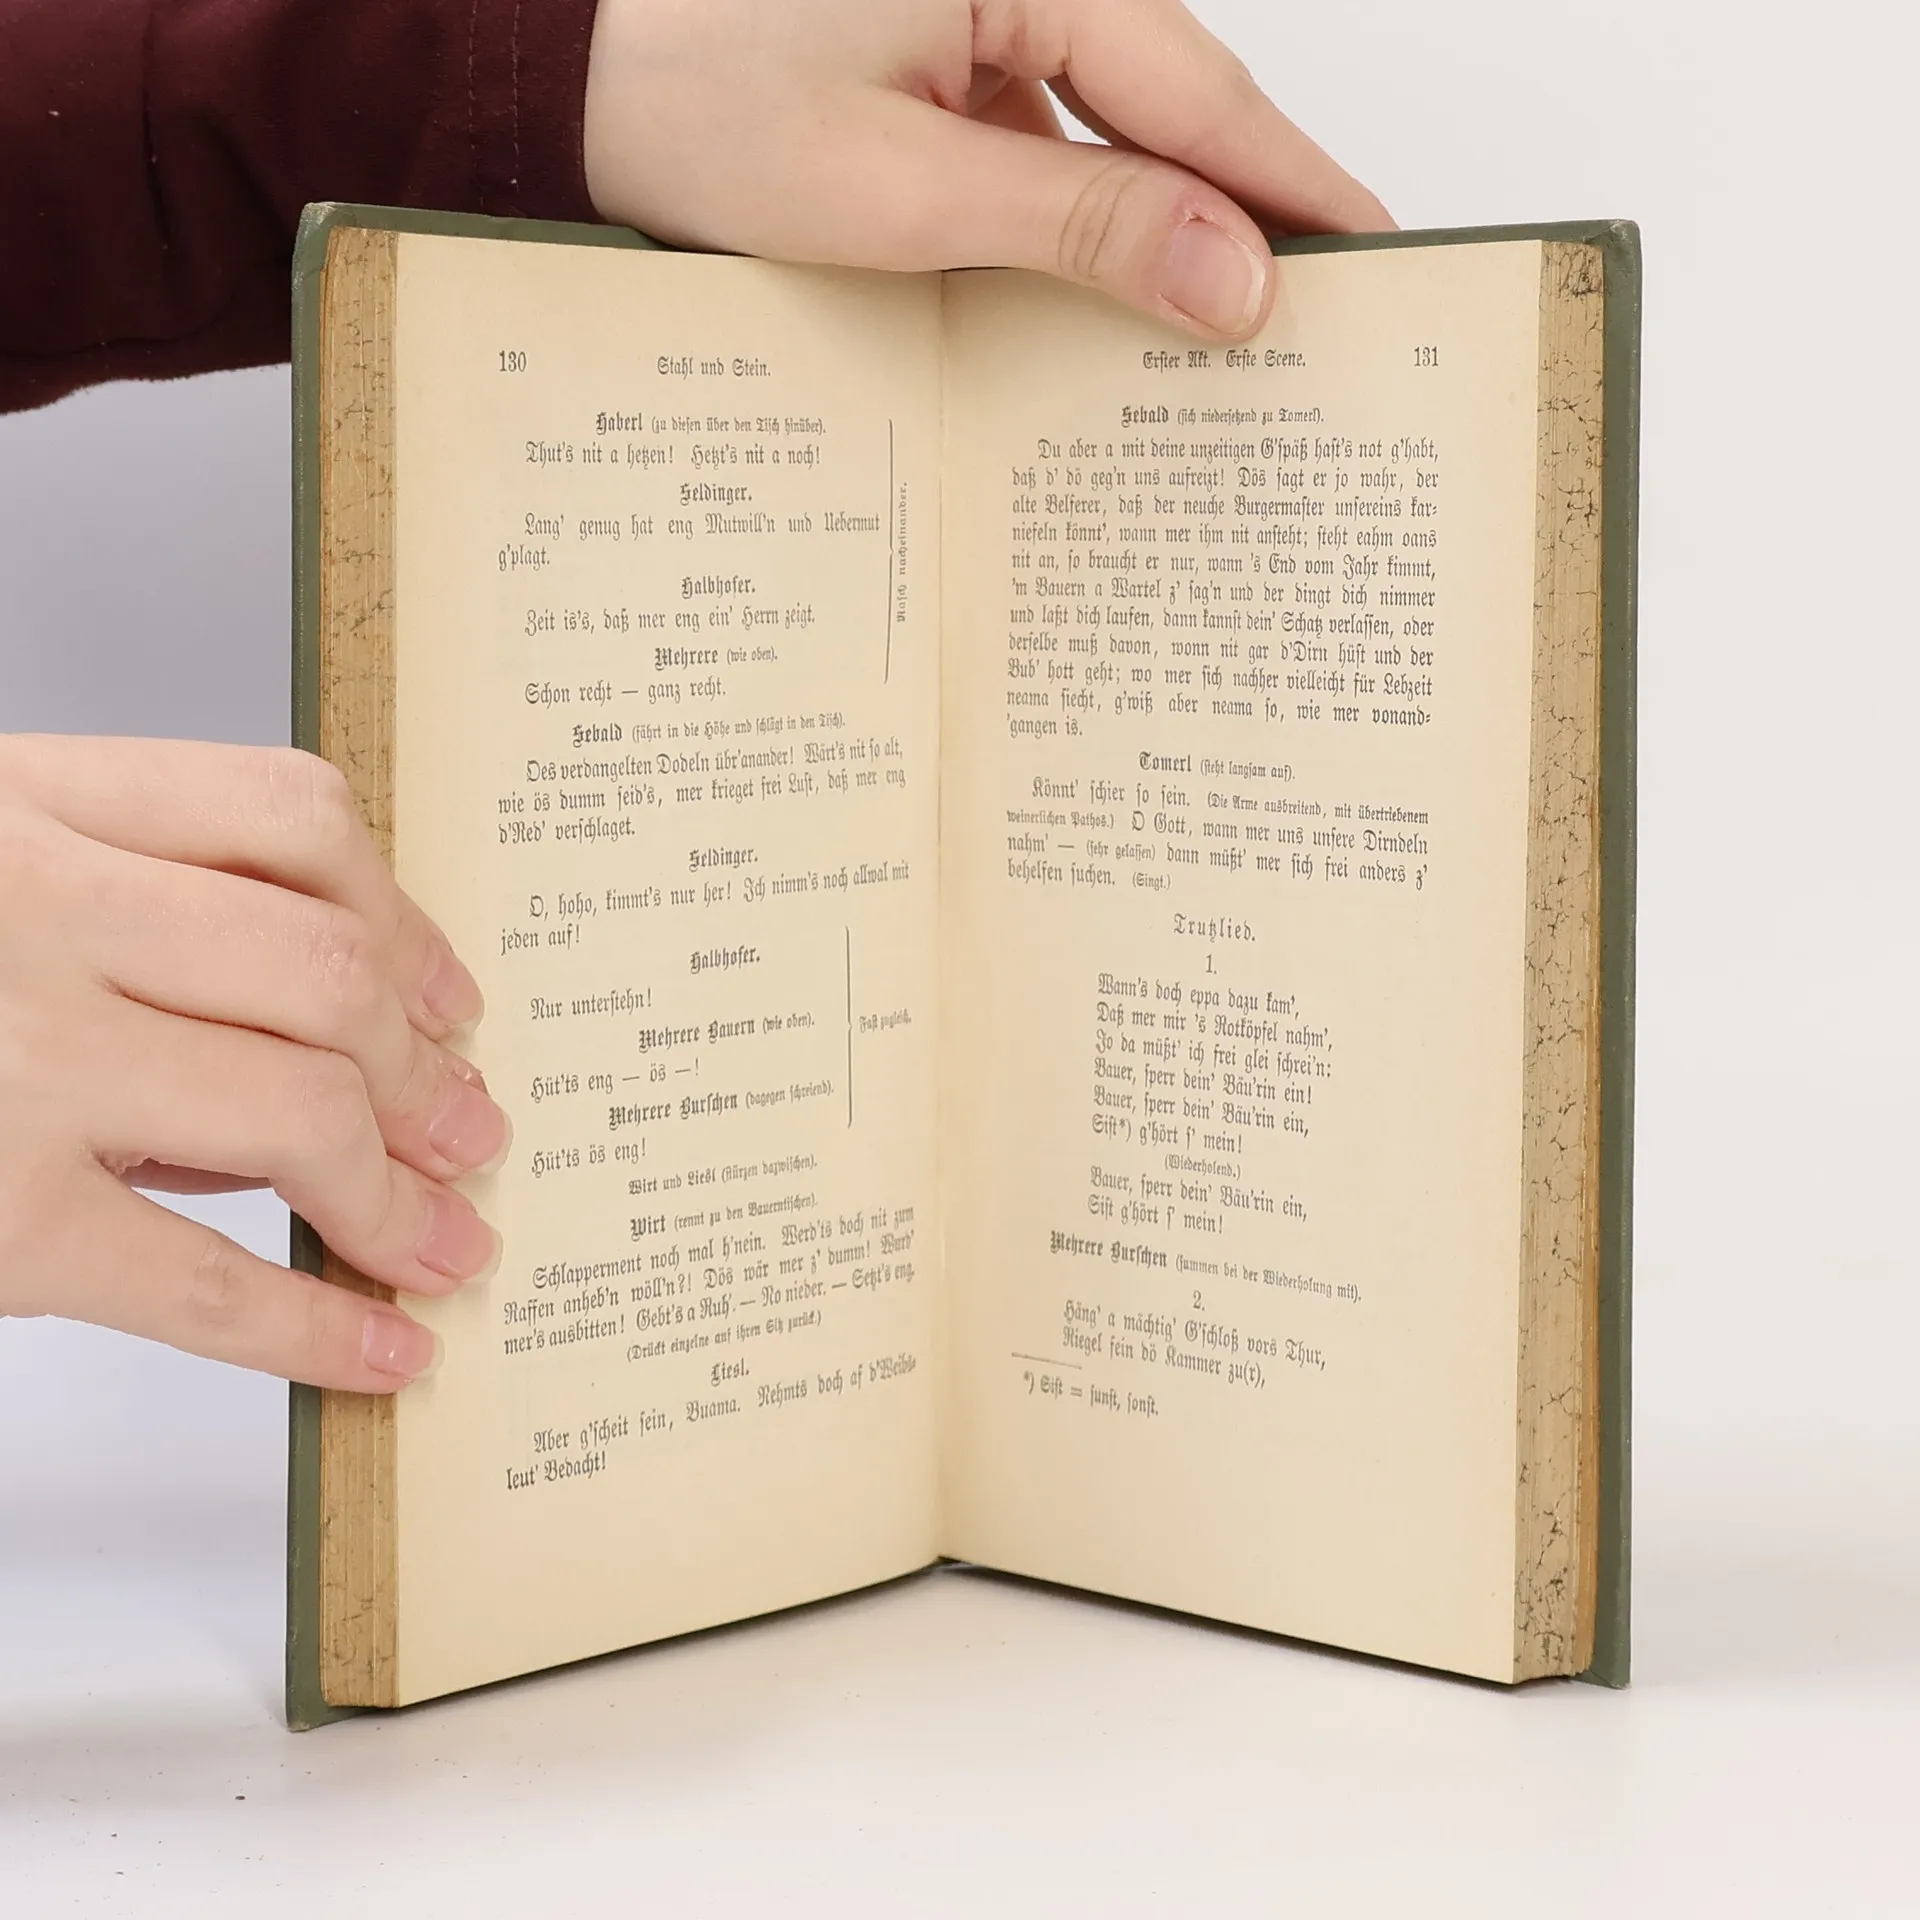 130
Stahl und Stein.
Haberl (zu diesen über den Tisch hinüber).
Thut's nit a hetzen! Hetzt's nit a noch!
Feldinger.
Lang' genug hat eng Mutwill'n und Uebermut
g'plagt.
Halbhofer.
Zeit is's, daß mer eng ein' Herrn zeigt.
Mehrere (wie oben).
Schon recht — ganz recht.
Rasch nacheinander.
Sebald (fährt in die Höhe und schlägt in den Tisch).
Oes verdangelten Dodeln übr'anander! Wärt's nit so alt,
wie ös dumm seid's, mer krieget frei Lust, daß mer eng
d'Red' verschlaget.
Feldinger.
O, hoho, kimmt's nur her! Ich nimm's noch allwal mit
jeden auf!
Halbhofer.
Nur unterstehn!
Mehrere Bauern (wie oben).
Hüt'ts eng — ös —!
Mehrere Burschen (dagegen schreiend).
Hüt'ts ös eng!
Fast zugleich.
Wirt und Liesl (stürzen dazwischen).
Wirt (rennt zu den Bauerntischen).
Schlapperment noch mal h'nein. Werd'ts doch nit zum
Raffen anheb'n wöll'n?! Dös wär mer z' dumm! Wurd'
mer's ausbitten! Gebt's a Ruh'. — No nieder. — Setzt's eng.
(Drückt einzelne auf ihren Sitz zurück.)
Liesl.
Aber g'scheit sein, Buama. Nehmts doch af d'Weibs-
leut' Bedacht!
Erster Akt. Erste Scene.
131
Sebald (sich niedersetzend zu Tomerl).
Du aber a mit deine unzeitigen G'späß hast's not g'habt,
daß d' dö geg'n uns aufreizt! Dös sagt er jo wahr, der
alte Belferer, daß der neuche Burgermaster unsereins kar-
niefeln könnt', wann mer ihm nit ansteht; steht eahm oans
nit an, so braucht er nur, wann 's End vom Jahr kimmt,
'm Bauern a Wartel z' sag'n und der dingt dich nimmer
und laßt dich laufen, dann kannst dein' Schatz verlassen, oder
derselbe muß davon, wonn nit gar d'Dirn hüst und der
Bub' hott geht; wo mer sich nachher vielleicht für Lebzeit
neama siecht, g'wiß aber neama so, wie mer vonand-
'gangen is.
Tomerl (steht langsam auf).
Könnt' schier so sein. (Die Arme ausbreitend, mit übertriebenem
weinerlichen Pathos.) O Gott, wann mer uns unsere Dirndeln
nahm' — (sehr gelassen) dann müßt' mer sich frei anders z'
behelfen suchen. (Singt.)
Trutzlied.
1.
Wann's doch eppa dazu kam',
Daß mer mir 's Rotköpfel nahm',
Jo da müßt' ich frei glei schrei'n:
Bauer, sperr dein' Bäu'rin ein!
Bauer, sperr dein' Bäu'rin ein,
Sist*) g'hört s' mein!
(Wiederholend.)
Bauer, sperr dein' Bäu'rin ein,
Sist g'hört s' mein!
Mehrere Burschen (summen bei der Wiederholung mit).
2.
Häng' a mächtig' G'schloß vors Thur,
Riegel fein dö Kammer zu(r),
*) Sist = sunst, sonst.